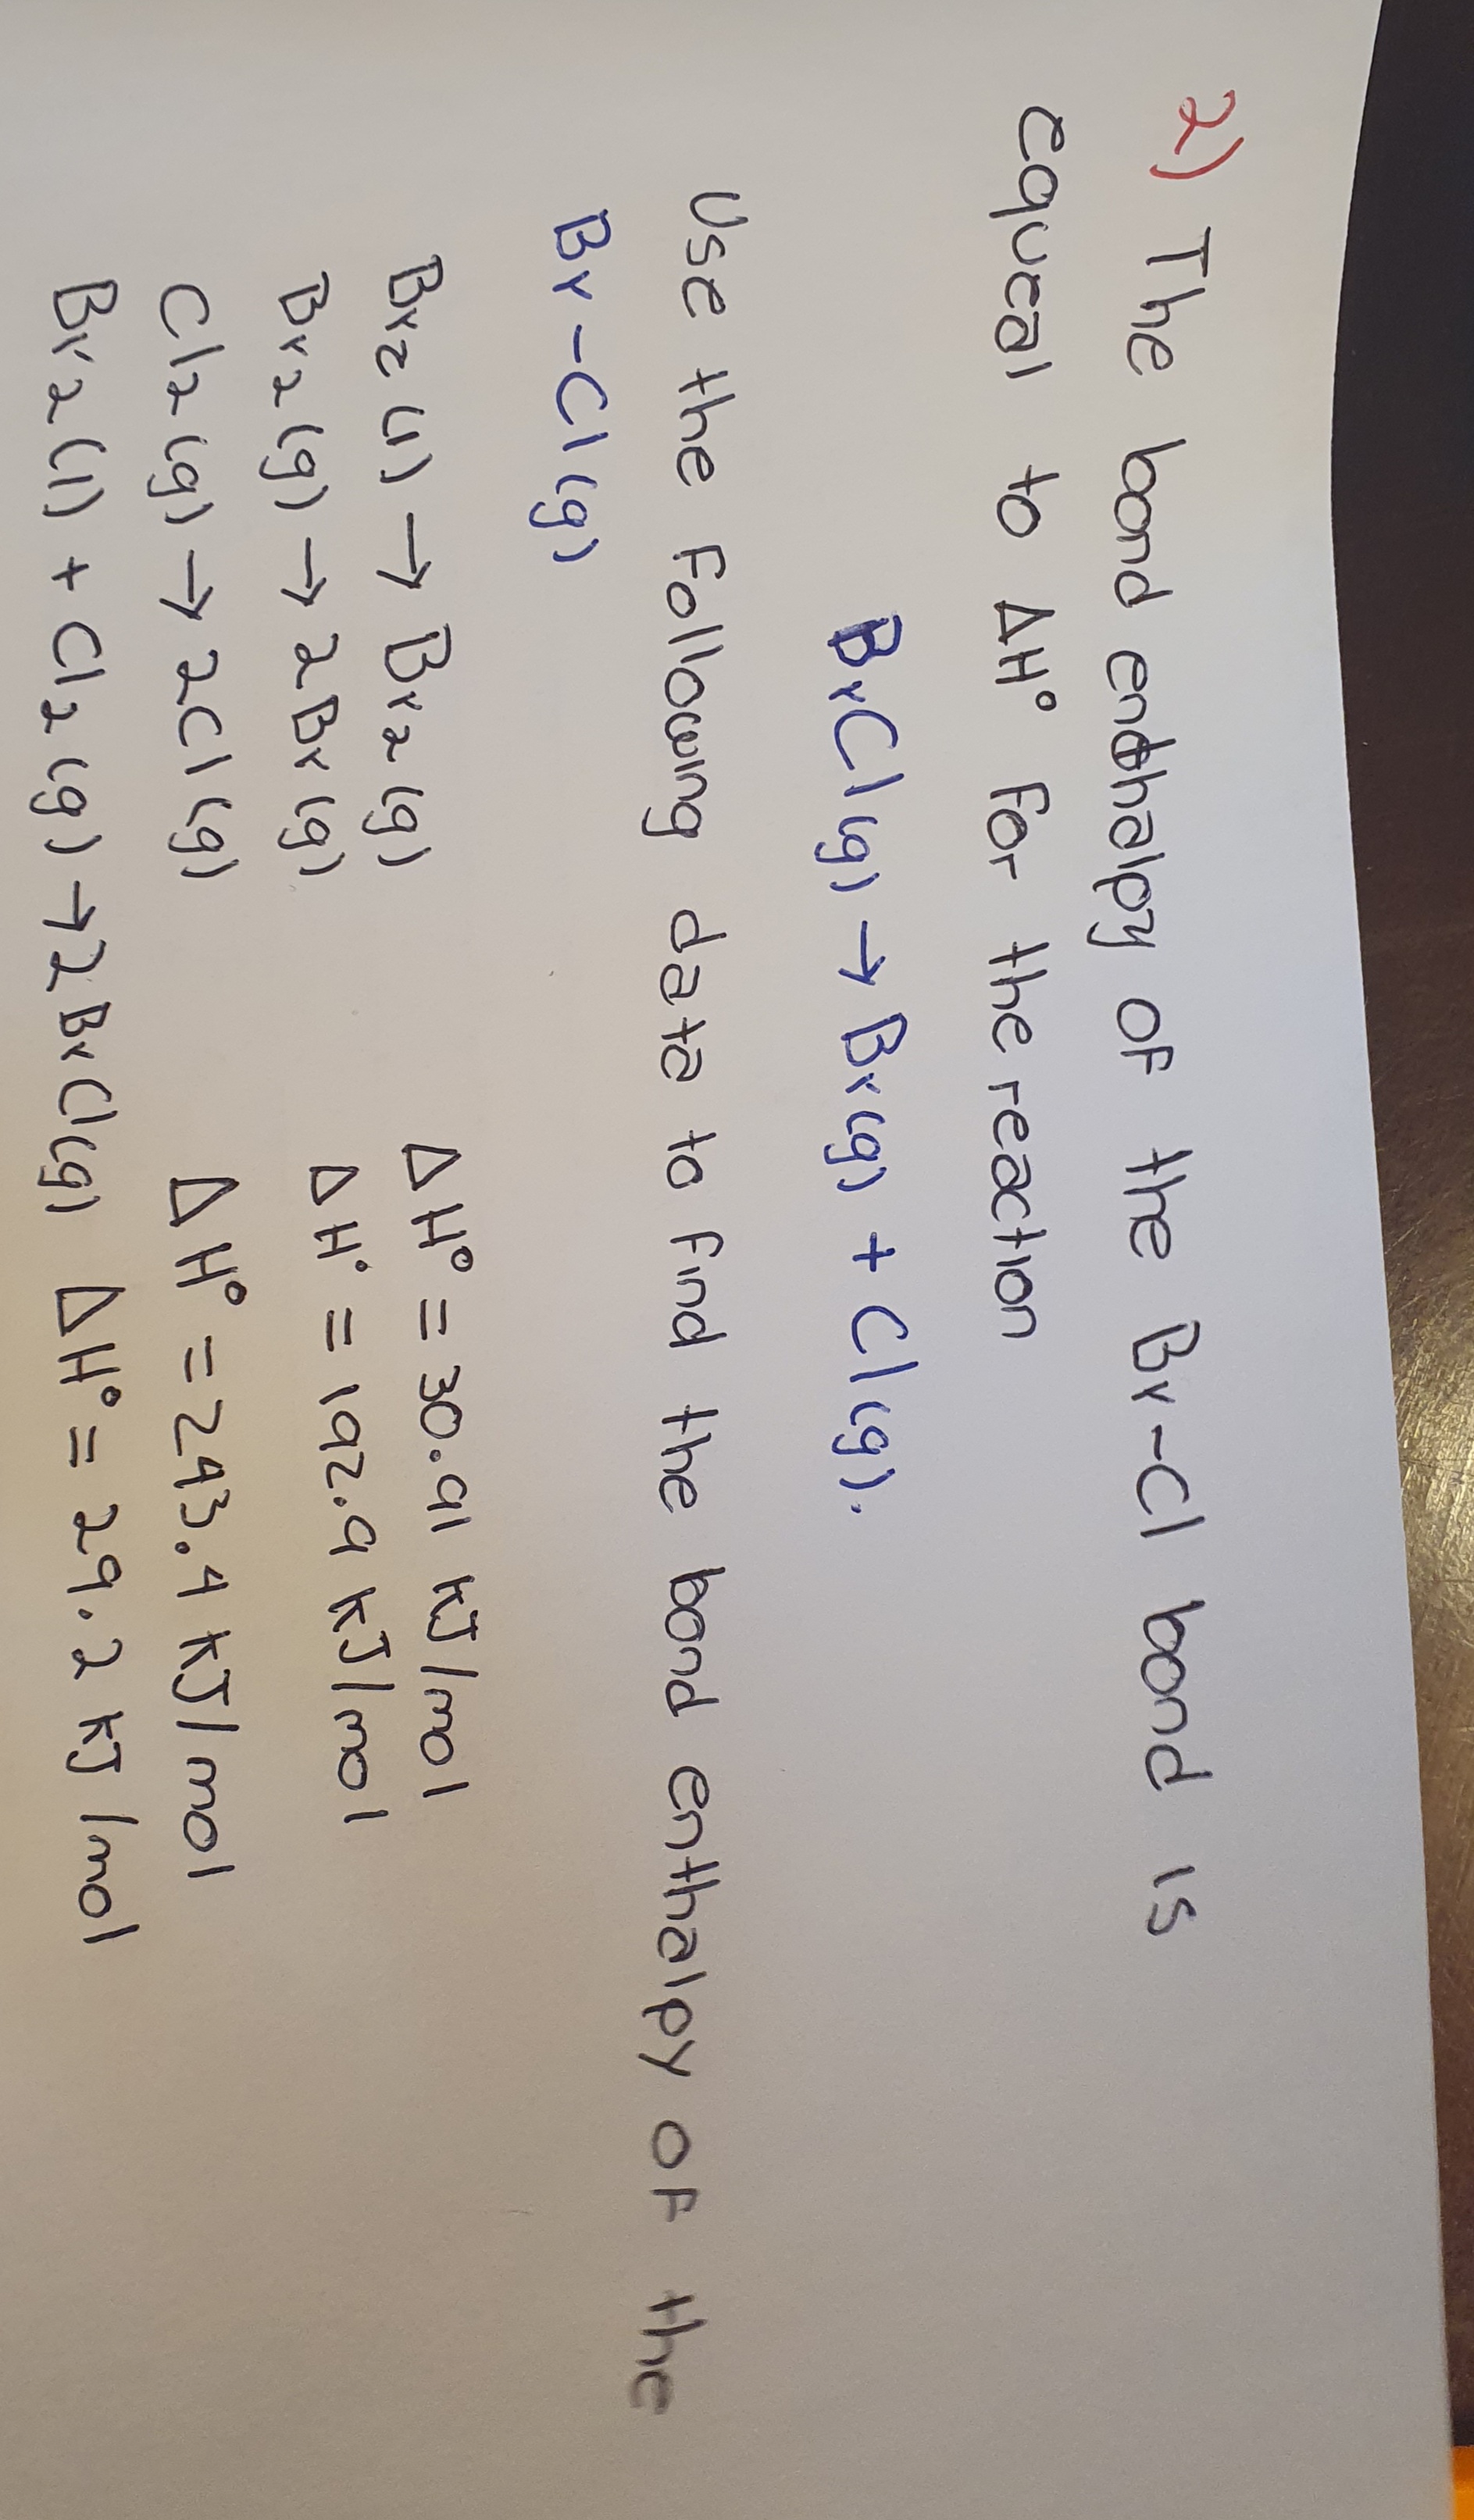 2) The bond enthalpy of the Br-Cl bond is
equal to ΔH° for the reaction
BrCl(g) → Br(g) + Cl(g).
Use the following data to find the bond enthalpy of the
Br-Cl(g)
Br2(l) → Br2(g) ΔH° = 30.91 kJ/mol
Br2(g) → 2Br(g) ΔH° = 192.9 kJ/mol
Cl2(g) → 2Cl(g) ΔH° = 243.4 kJ/mol
Br2(l) + Cl2(g) → 2BrCl(g) ΔH° = 29.2 kJ/mol